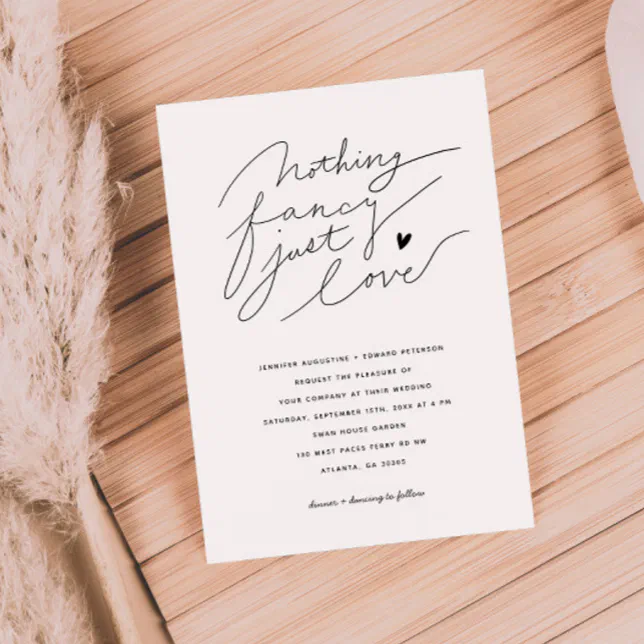 Nothing
fancy
just
love
JENNIFER AUGUSTINE + EDWARD PETERSON
REQUEST THE PLEASURE OF
YOUR COMPANY AT THEIR WEDDING
SATURDAY, SEPTEMBER 15TH, 20XX AT 4 PM
SWAN HOUSE GARDEN
130 WEST PACES FERRY RD NW
ATLANTA, GA 30305
dinner + dancing to follow